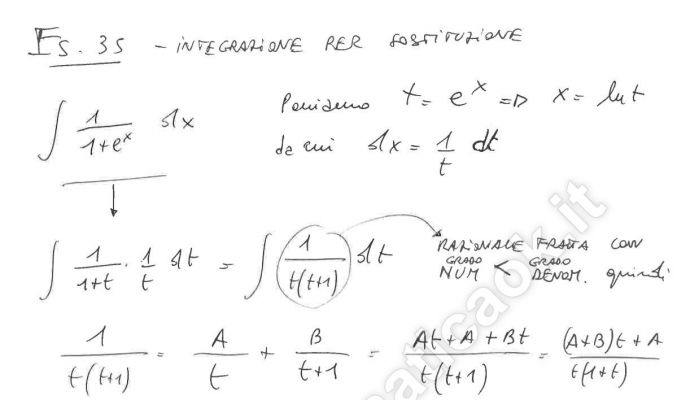 Es. 35 - INTEGRAZIONE PER SOSTITUZIONE
∫ 1/(1+e^x) dx Poniamo t = e^x => x = ln t
da cui dx = 1/t dt
∫ 1/(1+t) · 1/t dt = ∫ 1/(t(t+1)) dt RAZIONALE FRATTA CON
GRADO NUM < GRADO DENOM. quindi
1/(t(t+1)) = A/t + B/(t+1) = (At+A+Bt)/(t(t+1)) = ((A+B)t+A)/(t(1+t))
aticaok.it